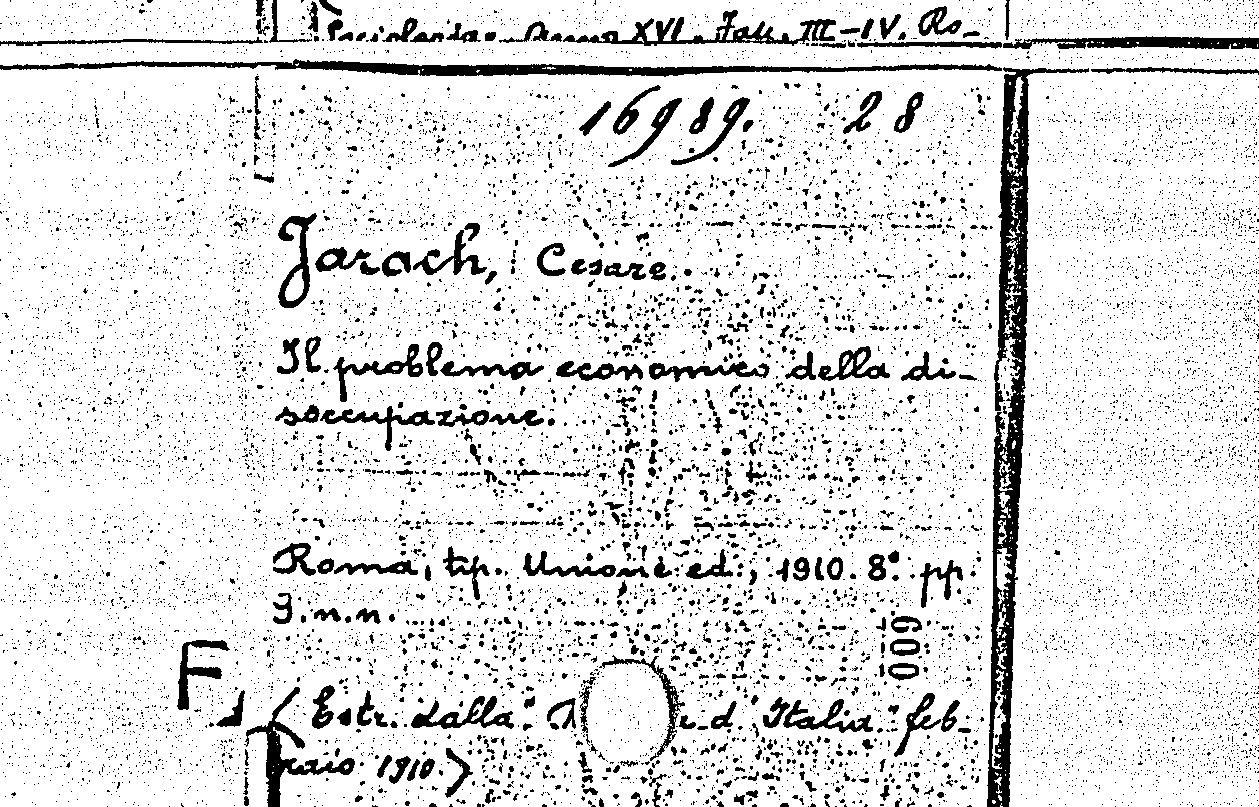 Anno XVI. Fasc. III-IV. Ro-
16989. 28
Jarach, Cesare.
Il problema economico della di-
soccupazione.
Roma, tip. Unione ed., 1910. 8° pp.
9.n.n.
009
F
(Estr. dalla " d'Italia" feb-
braio 1910)